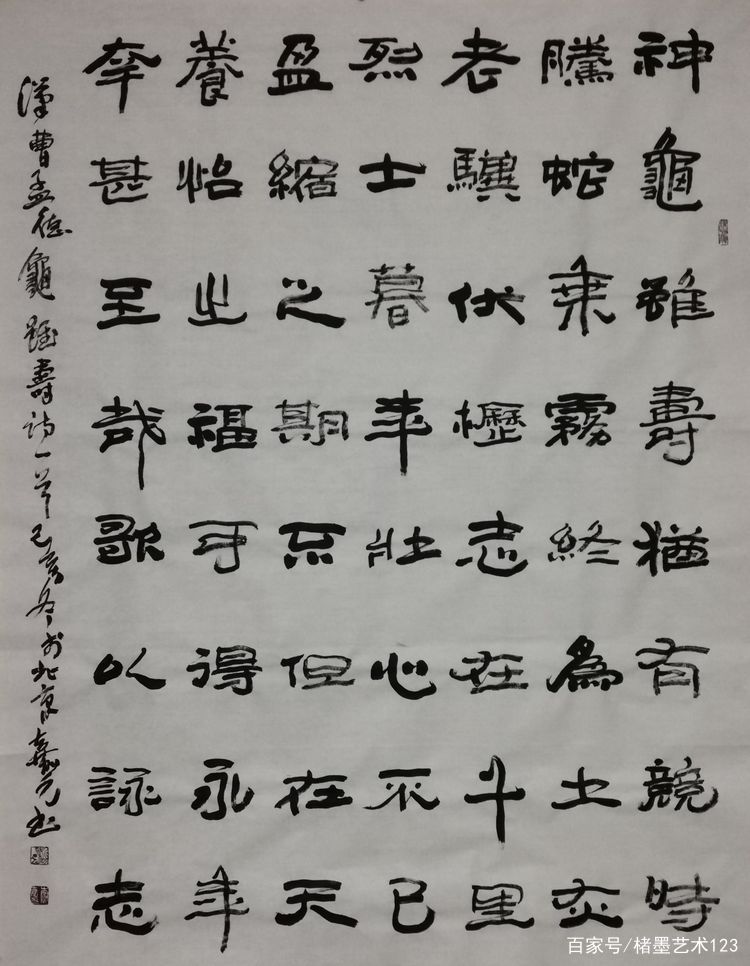 神龜雖壽猶有競時
騰蛇乘霧終為土灰
老驥伏櫪志在千里
烈士暮年壯心不已
盈縮之期不但在天
養怡之福可得永年
幸甚至哉歌以詠志
漢曹孟德龜雖壽詩一首己亥冬於北京嘉元書
百家号/楮墨艺术123